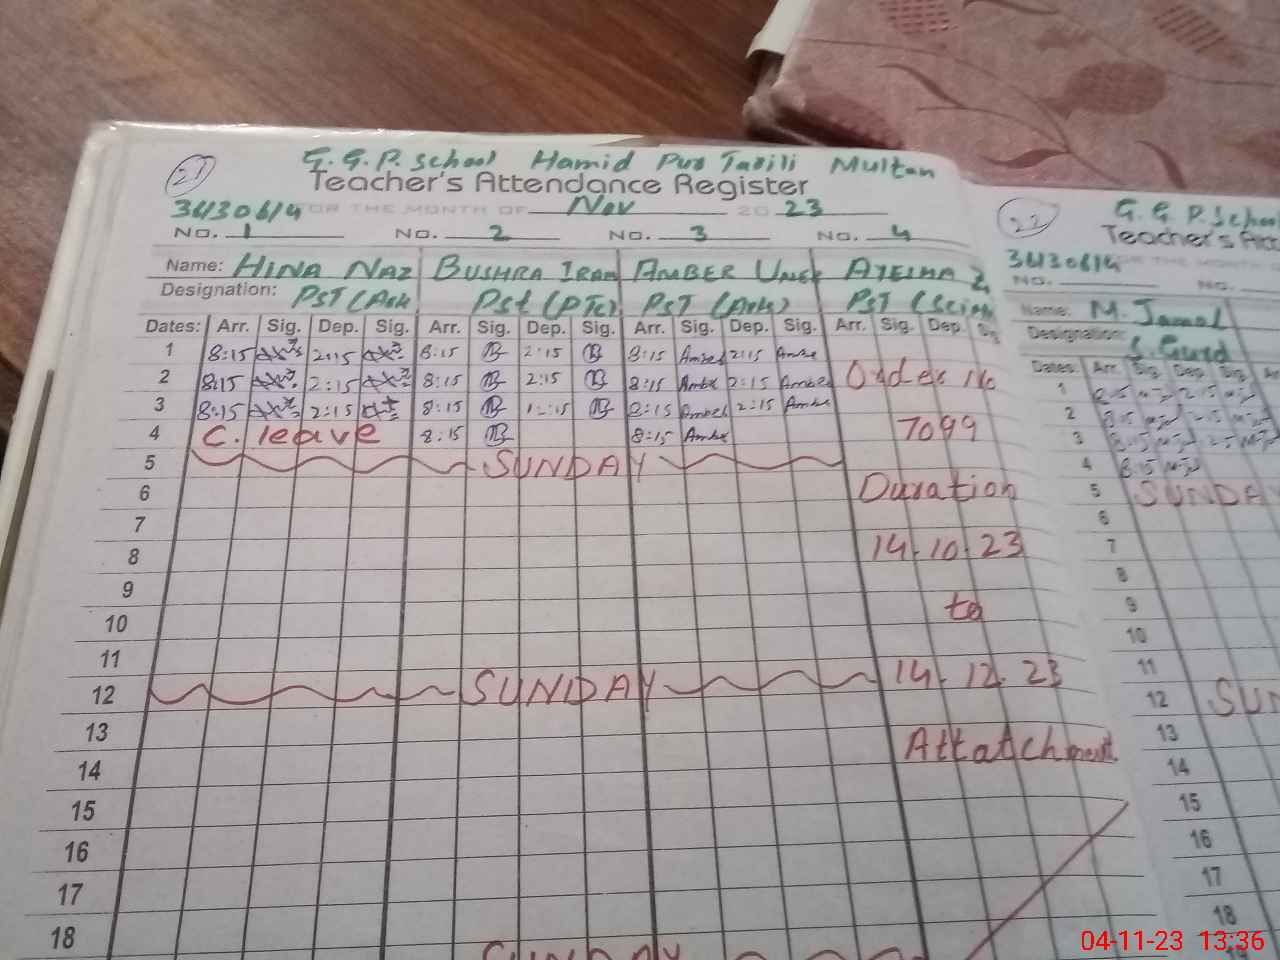 21
G. G. P. School Hamid Pur Tasili Multan
Teacher's Attendance Register
34130614 FOR THE MONTH OF Nov 20 23
No. 1 No. 2 No. 3 No. 4
Name: HINA NAZ BUSHRA IRAM AMBER AYESHA
Designation: PST (Ash PST (PTC) PST (Ash) PST
Dates: Arr. Sig. Dep. Sig. Arr. Sig. Dep. Sig. Arr. Sig. Dep. Sig. Arr. Sig. Dep. Sig.
1 8:15 2:15 8:15 2:15 8:15 Amber 2:15 Ambe
2 8:15 2:15 8:15 2:15 8:15 Ambe 2:15 Amber Order No
3 8:15 2:15 8:15 12:15 8:15 Amber 2:15 Ambe
4 C. leave 8:15 8:15 Ambe 7099
5 SUNDAY
6 Duration
7
8 14.10.23
9
10 to
11
12 SUNDAY 14.12.23
13
14 Attatchment.
15
16
17
18 Sunday
22
G. G. P. School
Teacher's
34130614
No. No.
Name: M. Jamal
Designation: S. Gurd
Dates: Arr. Sig. Dep. Sig.
1 8:15 2:15
2 8:15
3 8:15
4 8:15
5 SUNDA
6
7
8
9
10
11
12 SUN
13
14
15
16
17
18
04-11-23 13:36